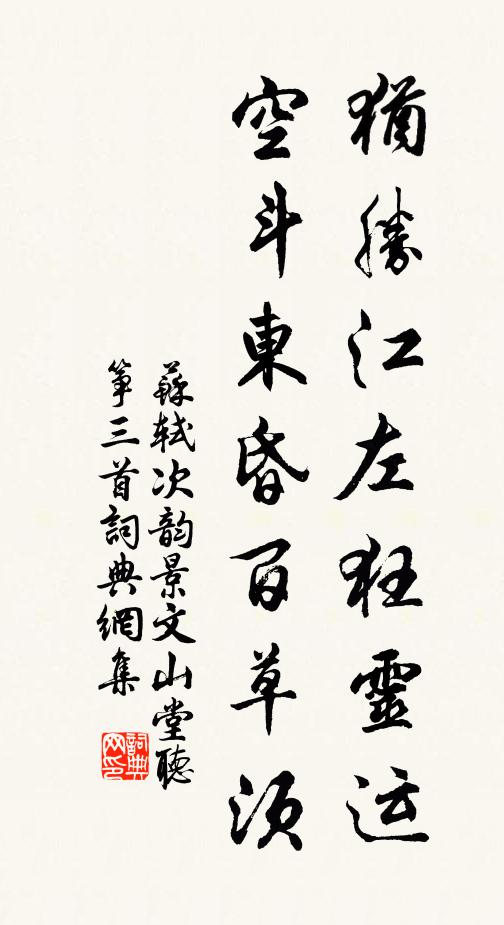 猶勝江左狂靈运
空斗東昏百草須
蘇軾次韵景文山堂聽
筝三首詞典網集
詞典
网印